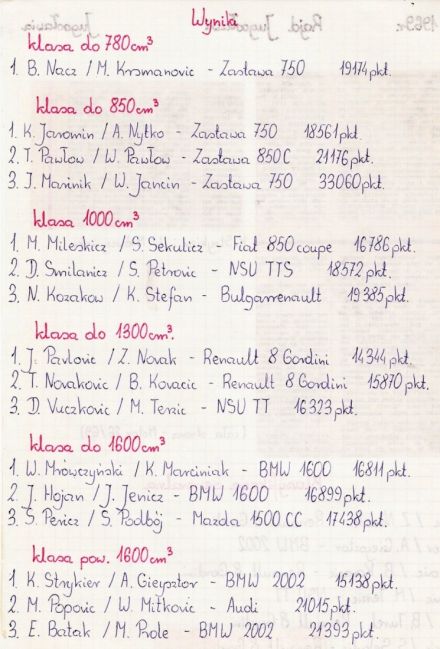 Wyniki
klasa do 780cm³
1. B. Nacz / M. Krsmanovic - Zastava 750 19174pkt.
klasa do 850cm³
1. K. Jaromin / A. Nytko - Zastava 750 18561pkt.
2. T. Pawłow / W. Pawłow - Zastava 850C 21176pkt.
3. J. Masinik / W. Jancin - Zastava 750 33060pkt.
klasa 1000cm³
1. M. Mileskicz / S. Sekulicz - Fiat 850 coupe 16786pkt.
2. D. Smilanicz / S. Petrovic - NSU TTS 18572pkt.
3. N. Kozakow / K. Stefan - Bulgarrenault 19385pkt.
klasa do 1300cm³.
1. J. Pavlovic / Z. Novak - Renault 8 Gordini 14344pkt.
2. T. Novakovic / B. Kovacic - Renault 8 Gordini 15870pkt.
3. D. Vuczkovic / M. Terzic - NSU TT 16323pkt.
klasa do 1600cm³
1. W. Mrówczyński / K. Marciniak - BMW 1600 16811pkt.
2. J. Hojan / J. Jenicz - BMW 1600 16899pkt.
3. S. Pericz / S. Podbój - Mazda 1500 CC 17438pkt.
klasa pow. 1600cm³
1. K. Strykier / A. Gieysztor - BMW 2002 15138pkt.
2. M. Popovic / W. Mitkovic - Audi 21015pkt.
3. E. Batak / M. Prole - BMW 2002 21393pkt.